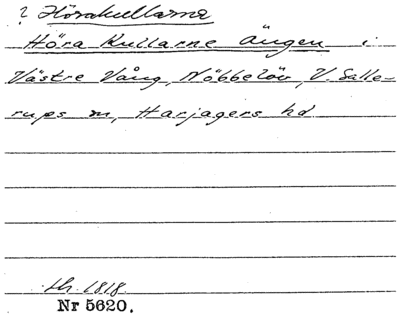 ? Hörakullarna
Höra Kullarne Ängen i
Västre Vång, Nöbbelöv, V. Salle-
rups sn, Harjagers hd
sh. 1818.
Nr 5620.